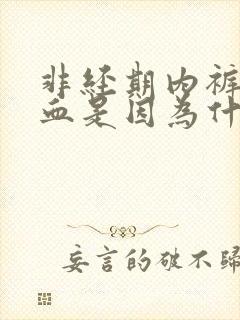 非经期内裤
血是因为什
妄言的破不归